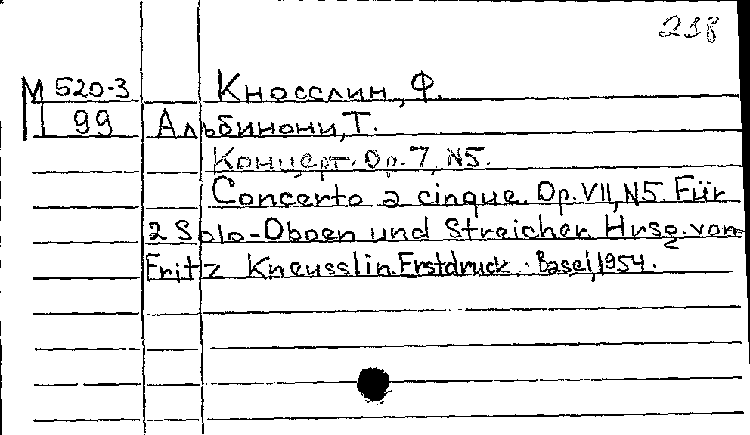 238
М 520-3 Кносслин, Ф.
99 Альбинони, Т.
Концерт. Op. 7, N5.
Concerto a cinque. Op. VII, N5. Für
2 Solo-Oboen und Streicher. Hrsg. von
Fritz Kneusslin. Erstdruck. Basel, 1954.